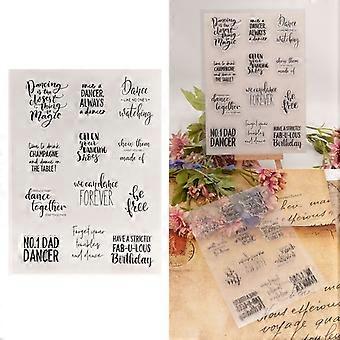 Dancing
is the
closest
Thing
to
Magic
once a
DANCER,
ALWAYS
a dancer
Dance
LIKE NO ONE'S
watching
time to drink
CHAMPAGNE
and dance on
THE TABLE!
put ON
your
DANCING
SHOES
show them
what you're
made of
dance
together
we can dance
FOREVER
be
free
NO.1 DAD
DANCER
Forget your
troubles
and dance
HAVE A STRICTLY
FAB-U-LOUS
Birthday
Dancing
is the
closest
Thing
to
Magic
once a
DANCER,
ALWAYS
a dancer
Dance
watching
time to drink
CHAMPAGNE
and dance on
THE TABLE!
your
DANCING
SHOES
show them
made of
dance
together
we can dance
FOREVER
be
free
NO.1 DAD
DANCER
Forget your
troubles
and dance
HAVE A STRICTLY
FAB-U-LOUS
Birthday